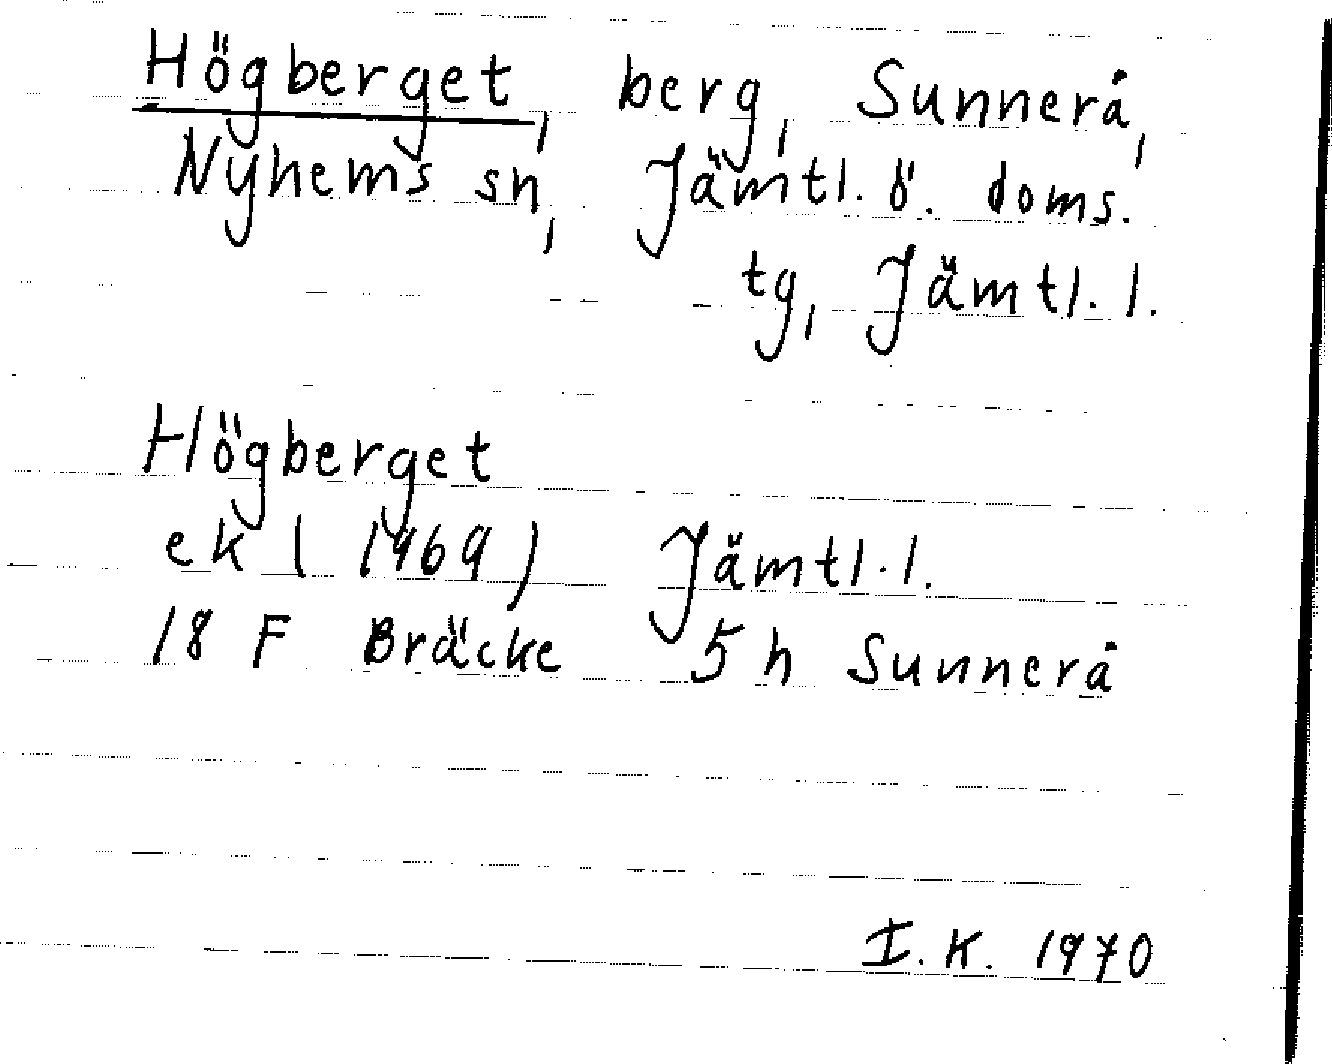 Högberget, berg, Sunnerå,
Nyhems sn, Jämtl. ö. doms.
tg, Jämtl. l.
Högberget
ek ( 1969 ) Jämtl. l.
18 F Bräcke 5 h Sunnerå
I. K. 1970